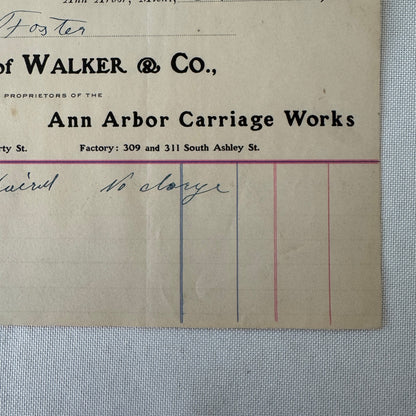 Ann Arbor, Mich.,
Foster
of WALKER & Co.,
PROPRIETORS OF THE
Ann Arbor Carriage Works
rty St. Factory: 309 and 311 South Ashley St.
No charge